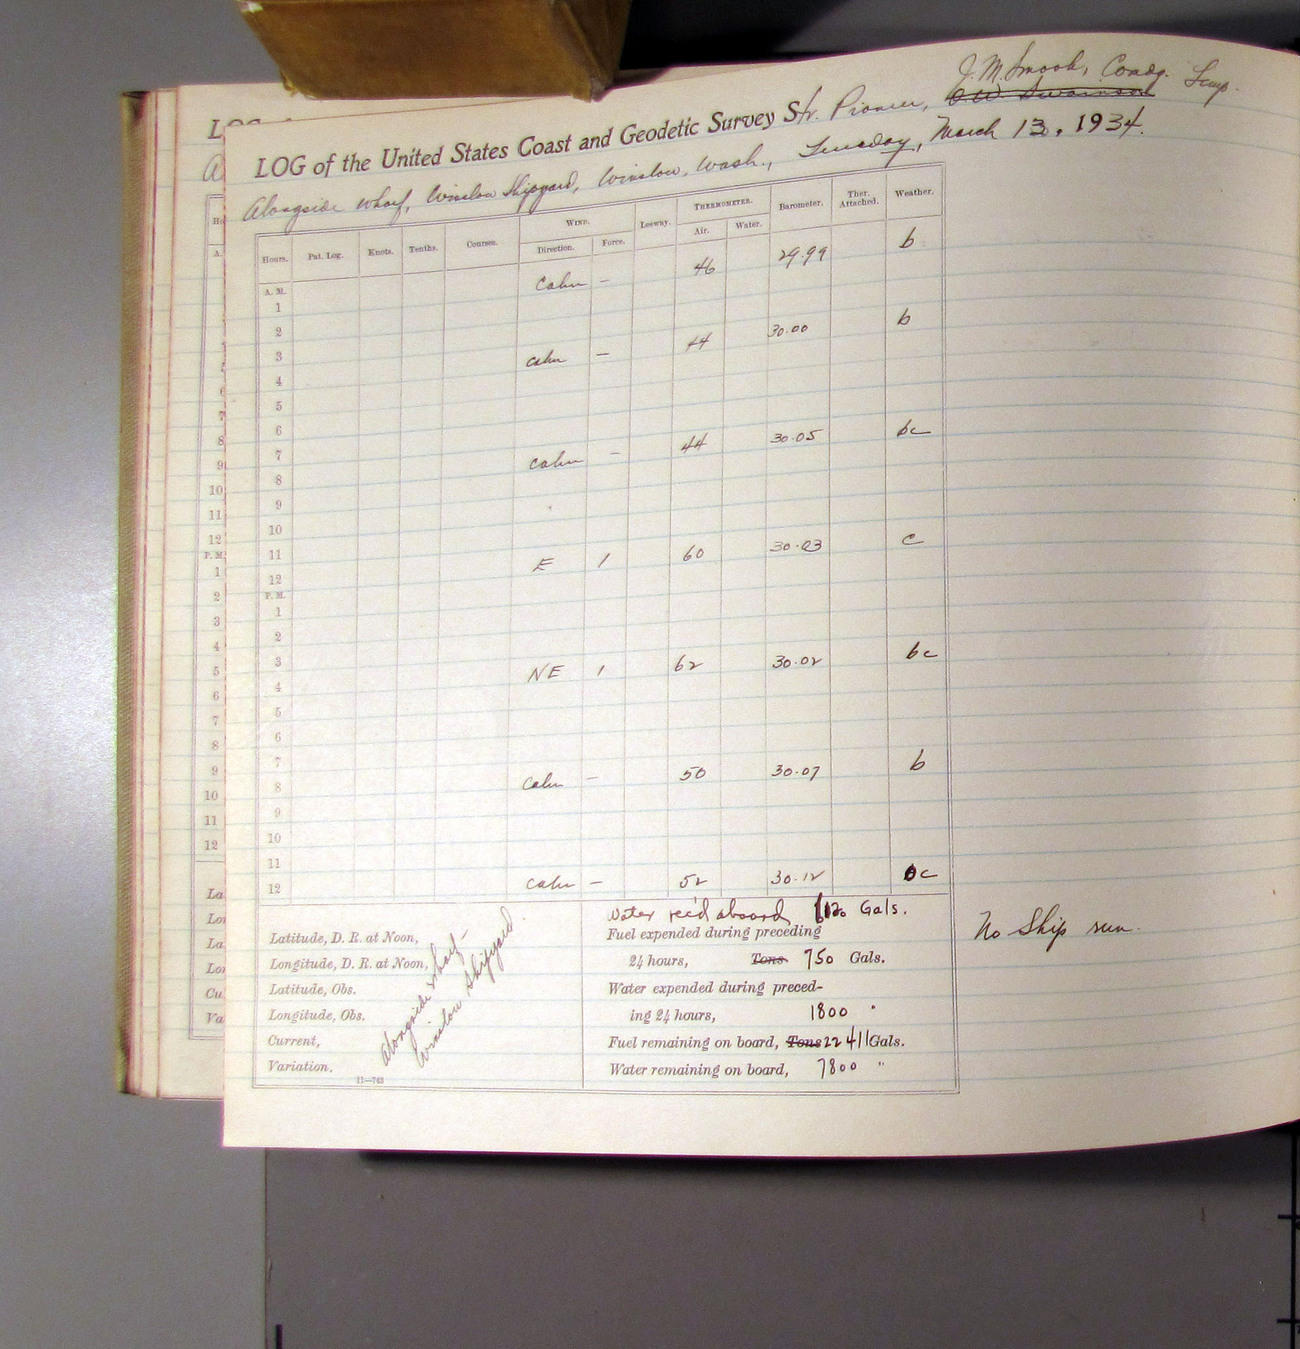 J. M. Smook, Comdg. Temp.
LOG of the United States Coast and Geodetic Survey Str. Pioneer, O. W. Swainson
Alongside wharf, Winslow Shipyard, Winslow, Wash., Tuesday, March 13, 1934.
Hours. Pat. Log. Knots. Tenths. Courses. WIND. Direction. Force. Leeway. THERMOMETER. Air. Water. Barometer. Ther. Attached. Weather.
A. M. calm — 46 29.99 b
1
2
3 calm — 44 30.00 b
4
5
6
7 calm — 44 30.05 bc
8
9
10
11 E 1 60 30.03 c
12
P. M.
1
2
3 NE 1 62 30.02 bc
4
5
6
7
8 calm — 50 30.07 b
9
10
11
12 calm — 52 30.12 c
Water rec'd aboard Gals.
Latitude, D. R. at Noon, Fuel expended during preceding
Longitude, D. R. at Noon, 24 hours, Tons 750 Gals.
Latitude, Obs. Water expended during preced-
Longitude, Obs. ing 24 hours, 1800 "
Current, Fuel remaining on board, Tons 22411 Gals.
Variation. Water remaining on board, 7800 "
Alongside wharf—
Winslow Shipyard
11—743
No Ship run.
LOG
A
Ho
A.
7
8
9
10
11
12
P. M.
1
2
3
4
5
6
7
8
9
10
11
12
La
Lo
La
Lo
Cu
Va